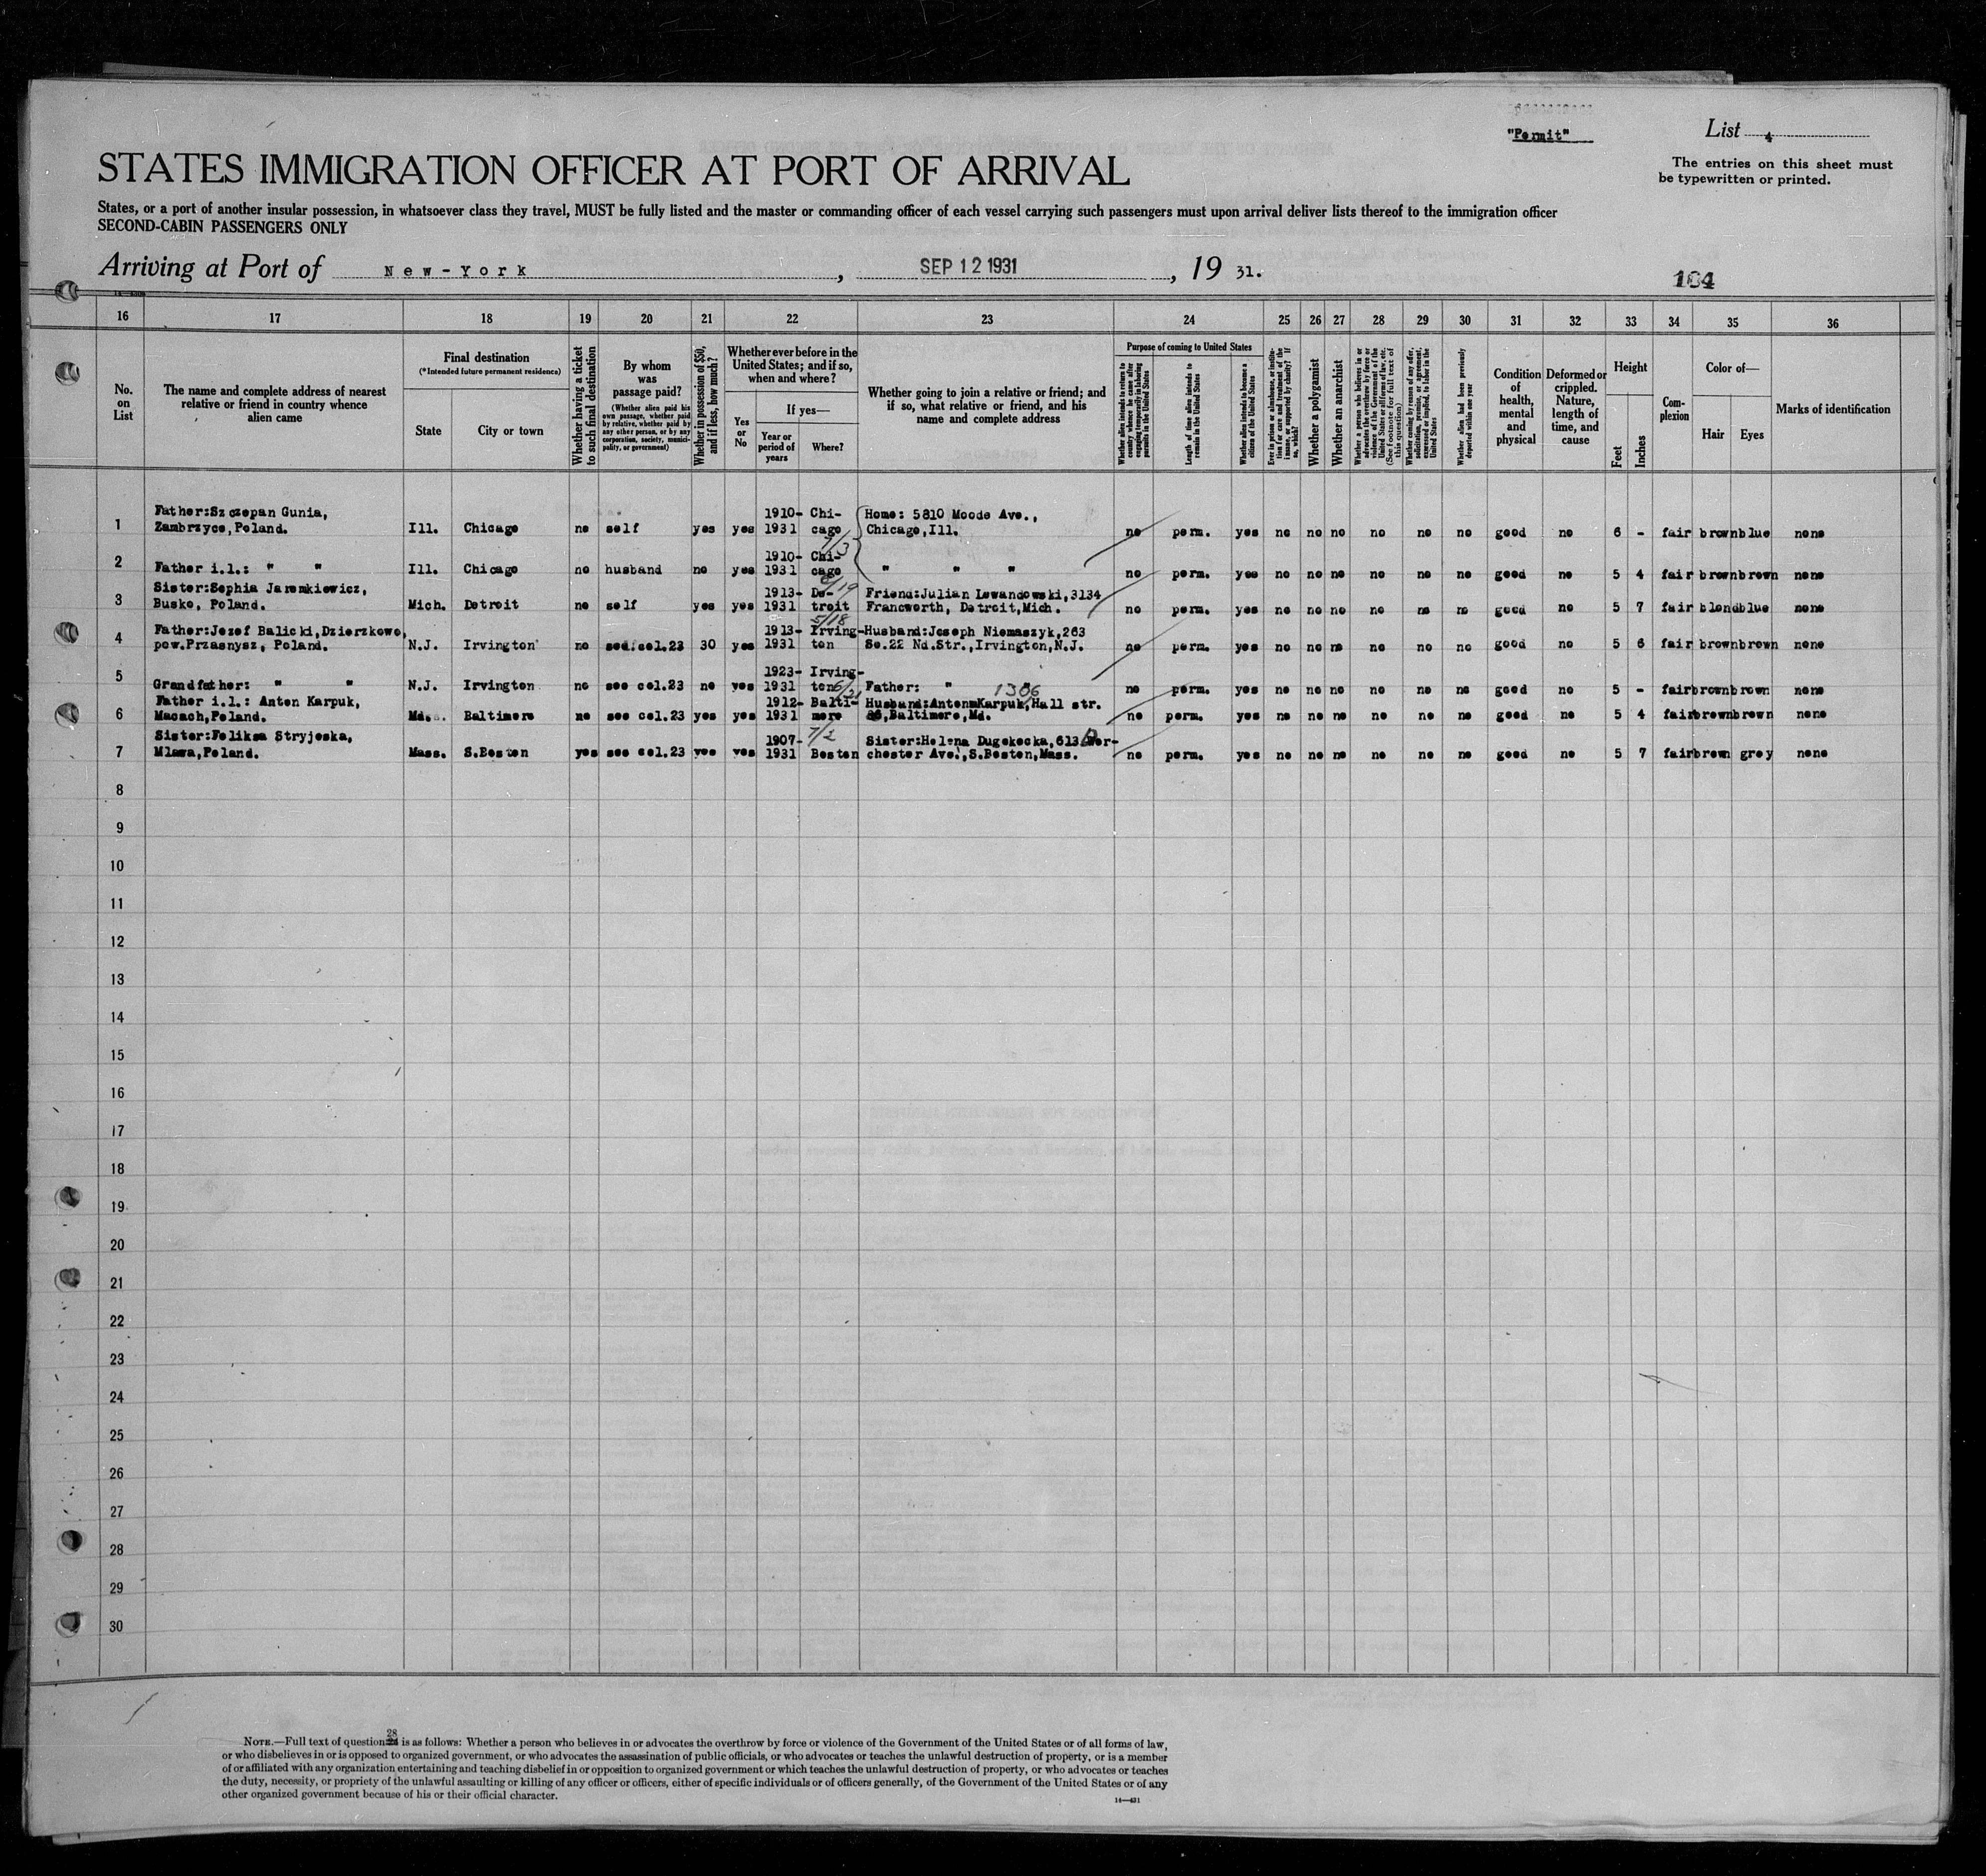 "Permit"
List 4
The entries on this sheet must
be typewritten or printed.
STATES IMMIGRATION OFFICER AT PORT OF ARRIVAL
States, or a port of another insular possession, in whatsoever class they travel, MUST be fully listed and the master or commanding officer of each vessel carrying such passengers must upon arrival deliver lists thereof to the immigration officer
SECOND-CABIN PASSENGERS ONLY
Arriving at Port of New-York, SEP 12 1931, 19 31.
184
16 17 18 19 20 21 22 23 24 25 26 27 28 29 30 31 32 33 34 35 36
No. on List
The name and complete address of nearest relative or friend in country whence alien came
Final destination
(*Intended future permanent residence)
State
City or town
Whether having a ticket to such final destination
By whom was passage paid?
(Whether alien paid his own passage, whether paid by relative, whether paid by any other person, or by any corporation, society, municipality, or government)
Whether in possession of $50, and if less, how much?
Whether ever before in the United States; and if so, when and where?
Yes or No
If yes—
Year or period of years
Where?
Whether going to join a relative or friend; and if so, what relative or friend, and his name and complete address
Purpose of coming to United States
Whether alien intends to return to country whence he came after engaging temporarily in laboring pursuits in the United States
Length of time alien intends to remain in the United States
Whether alien intends to become a citizen of the United States
Ever in prison or almshouse, or institution for care and treatment of the insane, or supported by charity? If so, which?
Whether a polygamist
Whether an anarchist
Whether a person who believes in or advocates the overthrow by force or violence of the Government of the United States or all forms of law, etc. (See footnote for full text of this question)
Whether coming by reason of any offer, solicitation, promise, or agreement, expressed or implied, to labor in the United States
Whether alien had been previously deported within one year
Condition of health, mental and physical
Deformed or crippled. Nature, length of time, and cause
Height
Feet
Inches
Complexion
Color of—
Hair
Eyes
Marks of identification
Father:Szczepan Gunia, 1910- Chi- Home: 5810 Moode Ave.,
1 Zambrzyce,Poland. Ill. Chicago no self yes yes 1931 cago Chicago,Ill. no perm. yes no no no no no no good no 6 - fair brown blue none
7/3
1910- Chi-
2 Father i.l.: " " Ill. Chicago no husband no yes 1931 cago " " " no perm. yes no no no no no no good no 5 4 fair brown brown none
Sister:Sophia Jaremkiewicz, 1913- De- 8/19 Friend:Julian Lewandowski,3134
3 Busko, Poland. Mich. Detroit no self yes yes 1931 troit Francworth, Detroit,Mich. no perm. yes no no no no no no good no 5 7 fair blond blue none
5/18
Father:Jozef Balicki,Dzierzkowo, 1913- Irving- Husband:Joseph Niemaszyk,263
4 pow.Przasnysz, Poland. N.J. Irvington no see.col.23 30 yes 1931 ton So.22 Nd.Str.,Irvington,N.J. no perm. yes no no no no no no good no 5 6 fair brown brown none
1923- Irving-
5 Grandfather: " " N.J. Irvington no see col.23 no yes 1931 ton 6/21 Father: " " 1306 no perm. yes no no no no no no good no 5 - fair brown brown none
Father i.l.: Anton Karpuk, 1912- Balti- Husband:Anton Karpuk,Hall str.
6 Macach,Poland. Md. Baltimore no see col.23 yes yes 1931 more 86,Baltimore,Md. no perm. yes no no no no no no good no 5 4 fair brown brown none
Sister:Feliksa Stryjeska, 1907- 7/2 Sister:Helena Dugokecka,613 Dor-
7 Mlawa,Poland. Mass. S.Boston yes see col.23 yes yes 1931 Boston chester Ave.,S.Boston,Mass. no perm. yes no no no no no no good no 5 7 fair brown grey none
8
9
10
11
12
13
14
15
16
17
18
19
20
21
22
23
24
25
26
27
28
29
30
NOTE.—Full text of question 28 is as follows: Whether a person who believes in or advocates the overthrow by force or violence of the Government of the United States or of all forms of law,
or who disbelieves in or is opposed to organized government, or who advocates the assassination of public officials, or who advocates or teaches the unlawful destruction of property, or is a member
of or affiliated with any organization entertaining and teaching disbelief in or opposition to organized government or which teaches the unlawful destruction of property, or who advocates or teaches
the duty, necessity, or propriety of the unlawful assaulting or killing of any officer or officers, either of specific individuals or of officers generally, of the Government of the United States or of any
other organized government because of his or their official character.
14—431